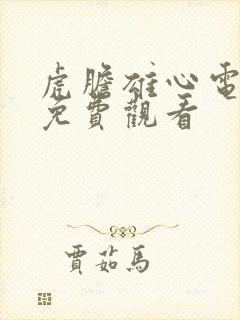 虎膽雄心電
免費觀看
賈茹馬